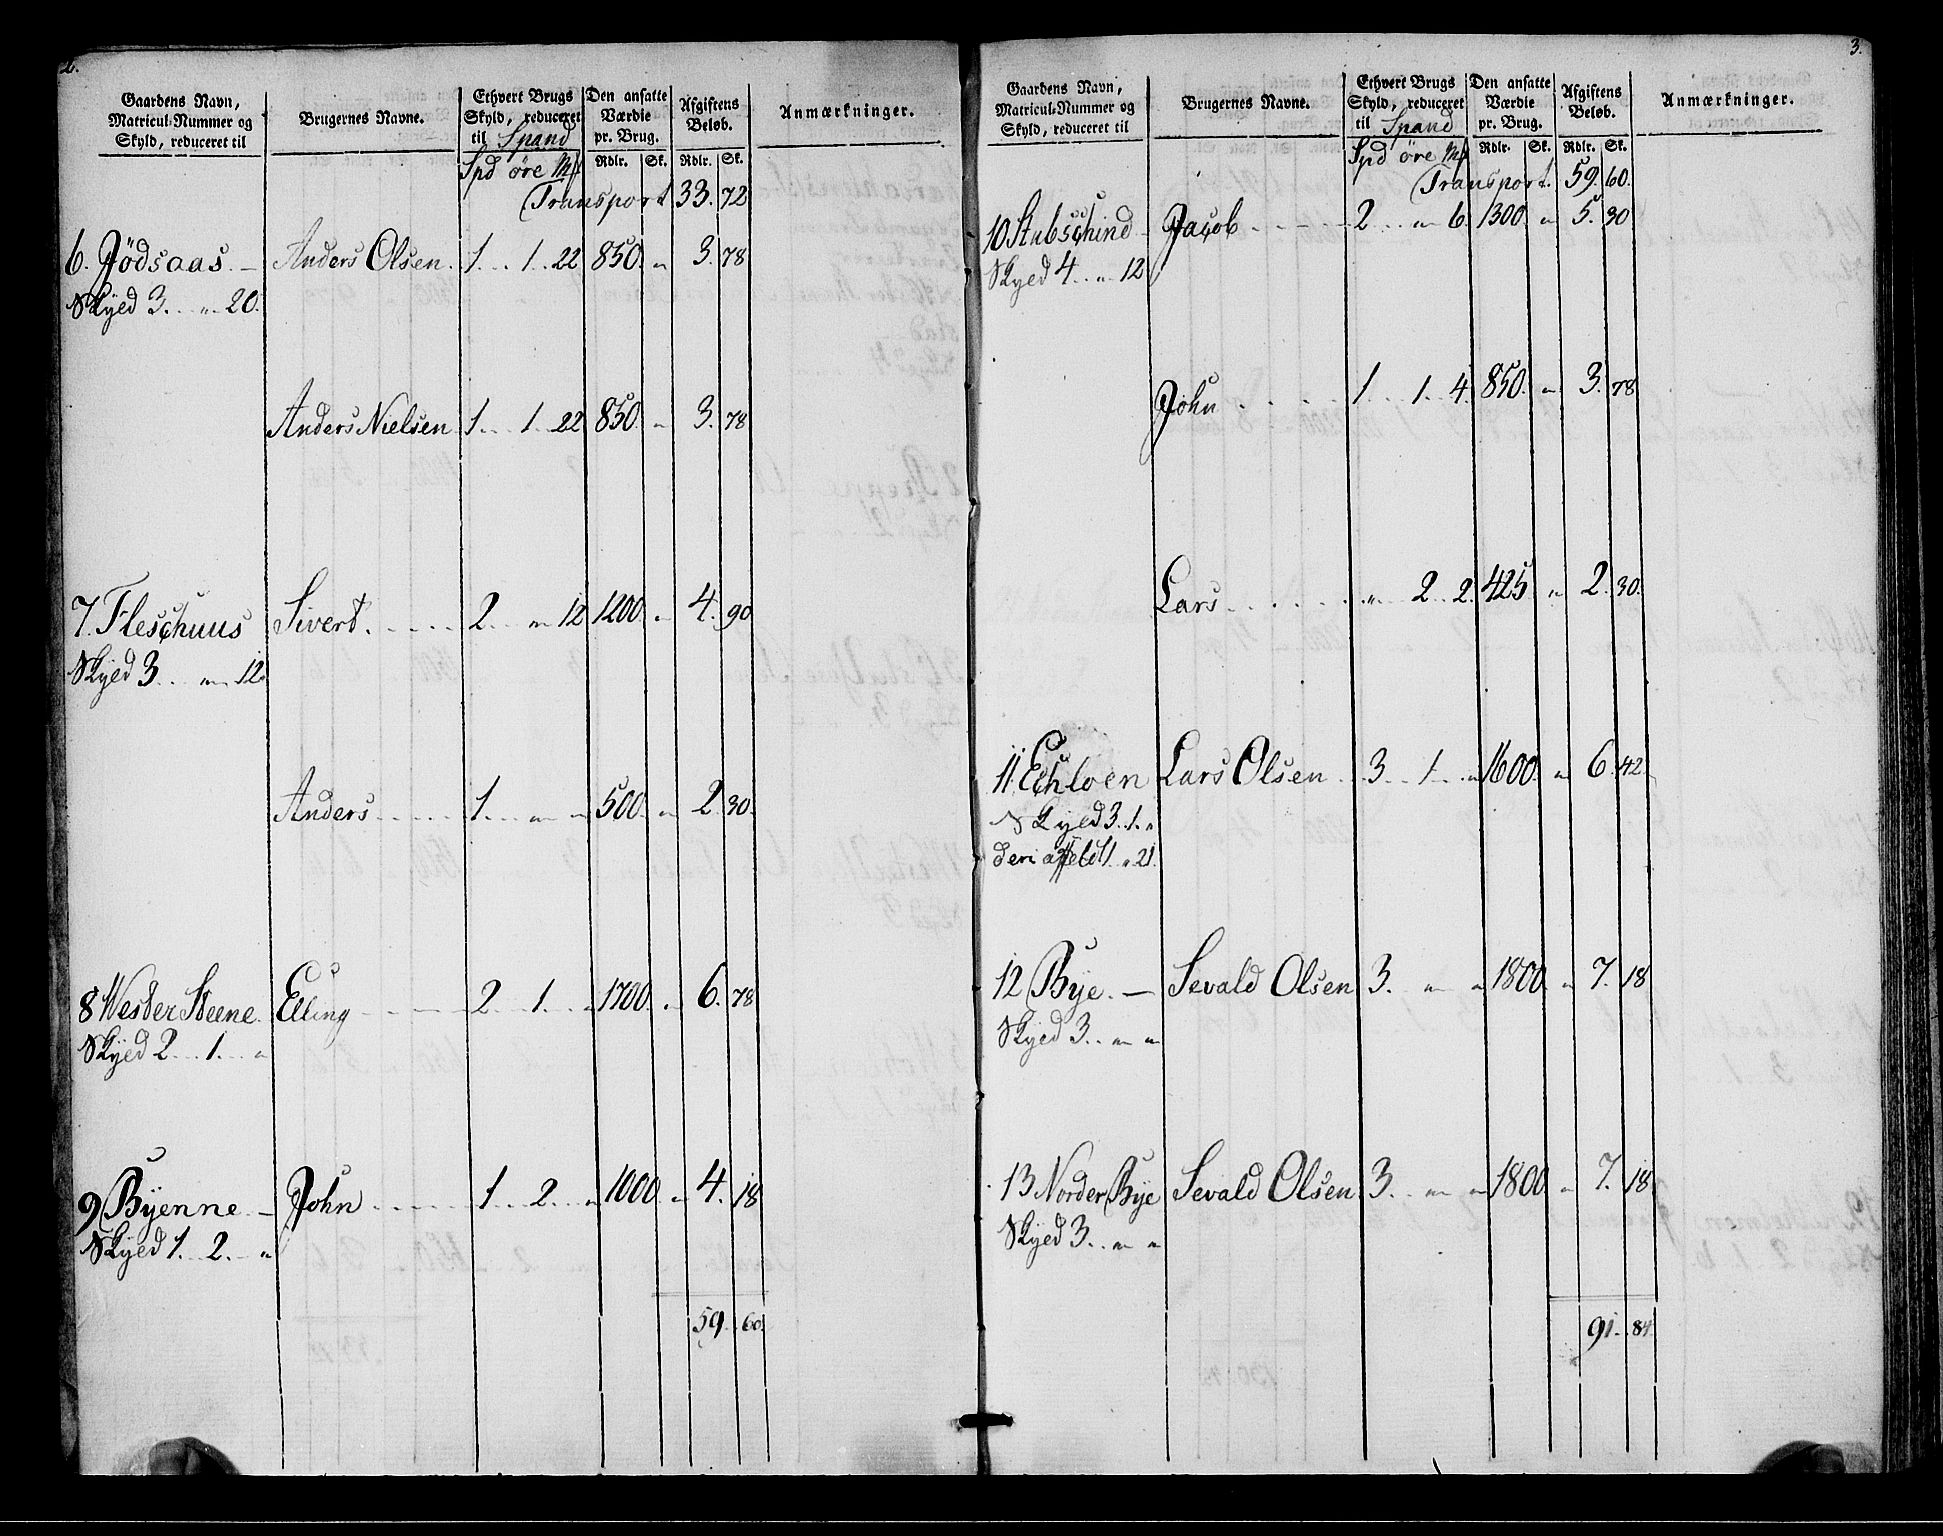 2.
Gaardens Navn,
Matricul-Nummer og
Skyld, reduceret til
Brugernes Navne.
Ethvert Brugs
Skyld, reduceret
til Spand
Den ansatte
Værdie
pr. Brug.
Afgiftens
Beløb.
Anmærkninger.
Spd øre Mk
Rdlr. Sk. Rdlr. Sk.
Transport 33. 72
6. Jödsaas. — Anders Olsen. 1... 1.. 22 850. " 3. 78
Skyed 3... " 20.
Anders Nielsen 1... 1.. 22 850. " 3. 78
7. Fleschuus Sivert. 2... " 12 1200. " 4. 90
Skyed 3... " 12.
Anders 1... " " 500. " 2. 30.
8 Wester Steene. Elling 2.. 1... " 1700. " 6. 78
Skyed 2... 1... "
9 Byenne. — John 1... 2... " 1000. " 4. 18
Skyed 1... 2... "
59. 60.
3.
Gaardens Navn,
Matricul-Nummer og
Skyld, reduceret til
Brugernes Navne.
Ethvert Brugs
Skyld, reduceret
til Spand
Den ansatte
Værdie
pr. Brug.
Afgiftens
Beløb.
Anmærkninger.
Spd øre Mk
Rdlr. Sk. Rdlr. Sk.
Transport. 59. 60.
10 Stubschind Jacob 2... " 6. 1300. " 5. 30
Skyed 4... " 12
John 1... 1.. 4. 850. " 3. 78
Lars " 2.. 2. 425 " 2. 30.
11. Echloen Lars Olsen 3... 1... " 1600. " 6. 42.
Skyed 3. 1. "
deri 1. " 21.
12 Bye. — Sevald Olsen 3... " " 1800. " 7. 18
Skyed 3.. " "
13 Norder Bye Sevald Olsen 3... " " 1800. " 7. 18
Skyed 3.. " "
91. 84.